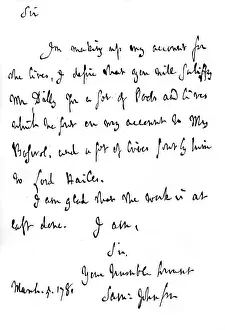 Sir
In making up my account for
the Lives, I desire that you will satisfy
Mr Dilly for a set of Poets and Lives
which he sent on my account to Mrs
Boswel, and a set of Lives sent by him
to Lord Hailes.
I am glad that the work is at
last done. I am,
Sir,
Your humble servant
March. 5. 178
Sam: Johnson